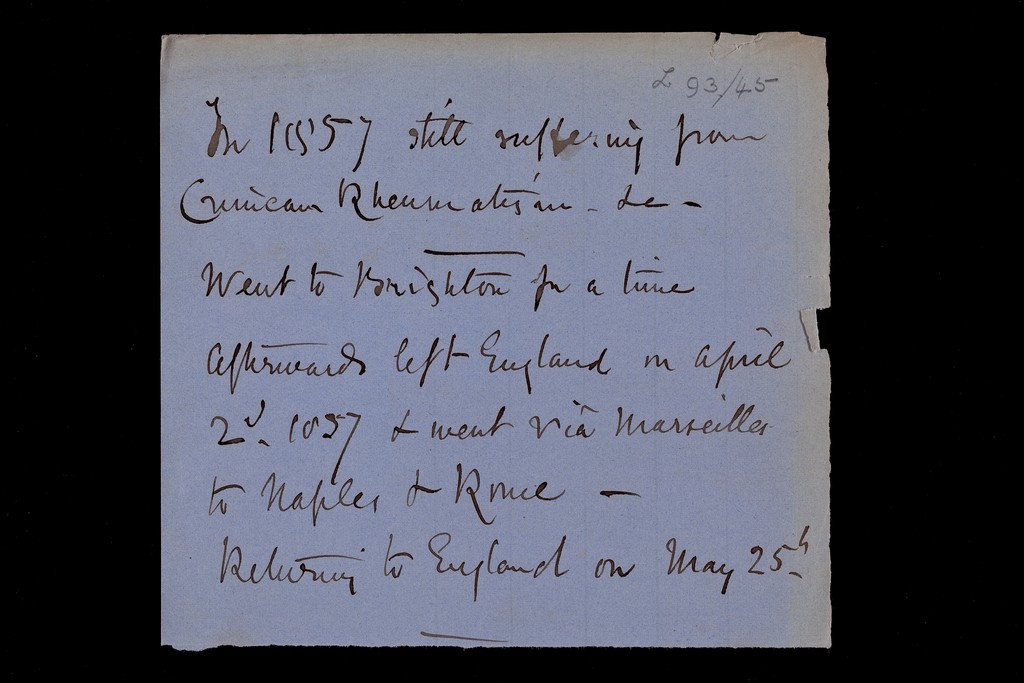 L 93/45
In 1857 still suffering from
Crimean Rheumatism - &c -
Went to Brighton for a time
afterwards left England on april
2d. 1857 & went viâ Marseilles
to Naples & Rome —
Returning to England on May 25th